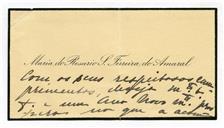 Maria do Rosario S. Ferreira do Amaral
Com os seus respeitosos cum
primentos, deseja m.to b.
e um Ano Novo m.to
que a